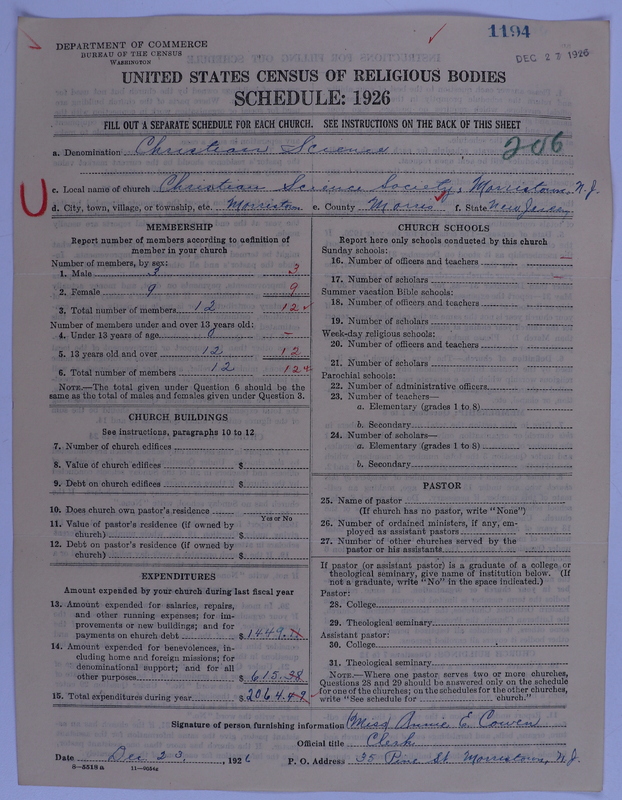 1194
DEC 27 1926
DEPARTMENT OF COMMERCE
BUREAU OF THE CENSUS
WASHINGTON
UNITED STATES CENSUS OF RELIGIOUS BODIES
SCHEDULE: 1926
FILL OUT A SEPARATE SCHEDULE FOR EACH CHURCH. SEE INSTRUCTIONS ON THE BACK OF THIS SHEET
a. Denomination Christian Science 206
c. Local name of church Christian Science Society, Morristown, N.J.
d. City, town, village, or township, etc. Morristown e. County Morris f. State New Jersey
MEMBERSHIP
Report number of members according to definition of
member in your church
Number of members, by sex:
1. Male 3 3
2. Female 9 9
3. Total number of members 12 12
Number of members under and over 13 years old:
4. Under 13 years of age 0 –
5. 13 years old and over 12 12
6. Total number of members 12 12
NOTE.—The total given under Question 6 should be the
same as the total of males and females given under Question 3.
CHURCH BUILDINGS
See instructions, paragraphs 10 to 12
7. Number of church edifices
8. Value of church edifices $
9. Debt on church edifices $
10. Does church own pastor's residence
Yes or No
11. Value of pastor's residence (if owned by
church) $
12. Debt on pastor's residence (if owned by
church) $
EXPENDITURES
Amount expended by your church during last fiscal year
13. Amount expended for salaries, repairs,
and other running expenses; for im-
provements or new buildings; and for
payments on church debt $ 1449.
14. Amount expended for benevolences, in-
cluding home and foreign missions; for
denominational support; and for all
other purposes $ 615.38
15. Total expenditures during year $ 2064.49
CHURCH SCHOOLS
Report here only schools conducted by this church
Sunday schools:
16. Number of officers and teachers –
17. Number of scholars –
Summer vacation Bible schools:
18. Number of officers and teachers
19. Number of scholars
Week-day religious schools:
20. Number of officers and teachers
21. Number of scholars
Parochial schools:
22. Number of administrative officers
23. Number of teachers—
a. Elementary (grades 1 to 8)
b. Secondary
24. Number of scholars—
a. Elementary (grades 1 to 8)
b. Secondary
PASTOR
25. Name of pastor
(If church has no pastor, write "None")
26. Number of ordained ministers, if any, em-
ployed as assistant pastors
27. Number of other churches served by the
pastor or his assistants
If pastor (or assistant pastor) is a graduate of a college or
theological seminary, give name of institution below. (If
not a graduate, write "No" in the space indicated.)
Pastor:
28. College
29. Theological seminary
Assistant pastor:
30. College
31. Theological seminary
NOTE.—Where one pastor serves two or more churches,
Questions 28 and 29 should be answered only on the schedule
for one of the churches; on the schedules for the other churches,
write "See schedule for church."
Signature of person furnishing information Miss Annie E. Cowen
Official title Clerk
Date Dec 23, 1926 P. O. Address 35 Pine St Morristown, N.J.
8-5518a 11-9054a